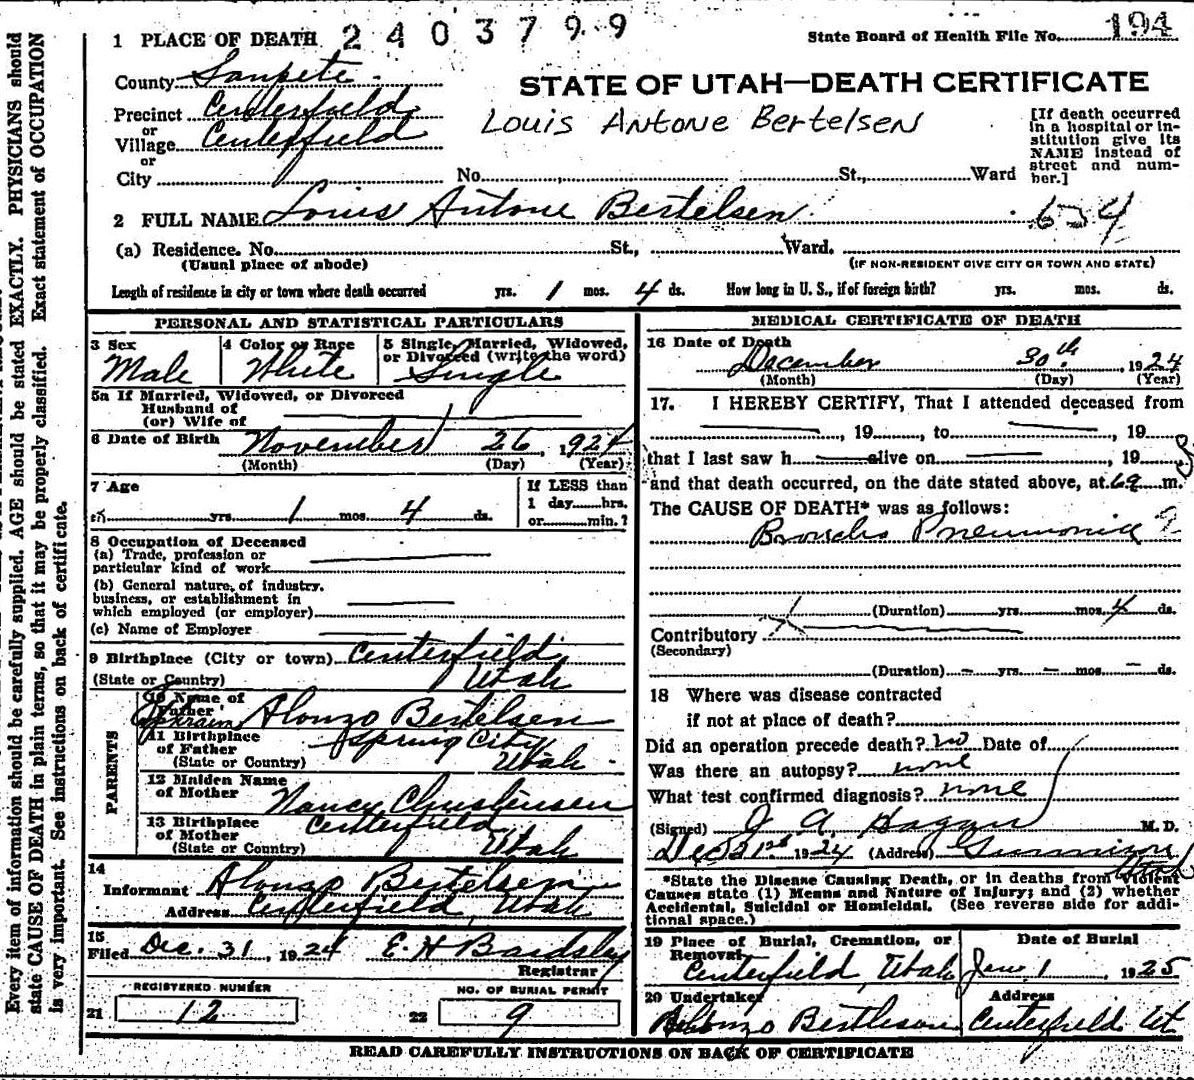 Every item of information should be carefully supplied. AGE should be stated EXACTLY. PHYSICIANS should
state CAUSE OF DEATH in plain terms, so that it may be properly classified. Exact statement of OCCUPATION
is very important. See instructions on back of certificate.
2403799
State Board of Health File No. 194
1 PLACE OF DEATH
STATE OF UTAH—DEATH CERTIFICATE
County Sanpete
Precinct Centerfield
or
Village Centerfield
or
City
Louis Antone Bertelsen
No. St., Ward
[If death occurred
in a hospital or in-
stitution give its
NAME instead of
street and num-
ber.]
2 FULL NAME Louis Antone Bertelsen
(a) Residence. No. St., Ward.
(Usual place of abode)
(IF NON-RESIDENT GIVE CITY OR TOWN AND STATE)
Length of residence in city or town where death occurred yrs. 1 mos. 4 ds. How long in U. S., if of foreign birth? yrs. mos. ds.
PERSONAL AND STATISTICAL PARTICULARS
3 Sex
Male
4 Color or Race
White
5 Single, Married, Widowed,
or Divorced (write the word)
Single
5a If Married, Widowed, or Divorced
Husband of
(or) Wife of
6 Date of Birth November 26, 1924
(Month) (Day) (Year)
7 Age
yrs. 1 mos. 4 ds.
If LESS than
1 day hrs.
or min.?
8 Occupation of Deceased
(a) Trade, profession or
particular kind of work
(b) General nature, of industry.
business, or establishment in
which employed (or employer)
(c) Name of Employer
9 Birthplace (City or town) Centerfield
(State or Country) Utah
PARENTS
10 Name of
Father
Ephraim Alonzo Bertelsen
11 Birthplace
of Father Spring City
(State or Country) Utah
12 Maiden Name
of Mother Nancy Christensen
13 Birthplace
of Mother Centerfield
(State or Country) Utah
14
Informant Alonzo Bertelsen
Address Centerfield, Utah
15
Filed Dec. 31, 1924 E. H Bardsley
Registrar
REGISTERED NUMBER
21 12
NO. OF BURIAL PERMIT
22 9
MEDICAL CERTIFICATE OF DEATH
16 Date of Death
December 30th, 1924
(Month) (Day) (Year)
17. I HEREBY CERTIFY, That I attended deceased from
, 19 , to , 19
that I last saw h alive on , 19
and that death occurred, on the date stated above, at m.
The CAUSE OF DEATH* was as follows:
Broncho Pneumonia
(Duration) yrs. mos. 4 ds.
Contributory
(Secondary)
(Duration) yrs. mos. ds.
18 Where was disease contracted
if not at place of death?
Did an operation precede death? no Date of
Was there an autopsy? none
What test confirmed diagnosis? none
(Signed) J A. Hagan M. D.
Dec 31st 1924 (Address) Gunnison Utah
*State the Disease Causing Death, or in deaths from Violent
Causes state (1) Means and Nature of Injury; and (2) whether
Accidental, Suicidal or Homicidal. (See reverse side for addi-
tional space.)
19 Place of Burial, Cremation, or
Removal
Centerfield, Utah
Date of Burial
Jan 1, 1925
20 Undertaker
Alonzo Bertleson
Address
Centerfield Ut
READ CAREFULLY INSTRUCTIONS ON BACK OF CERTIFICATE